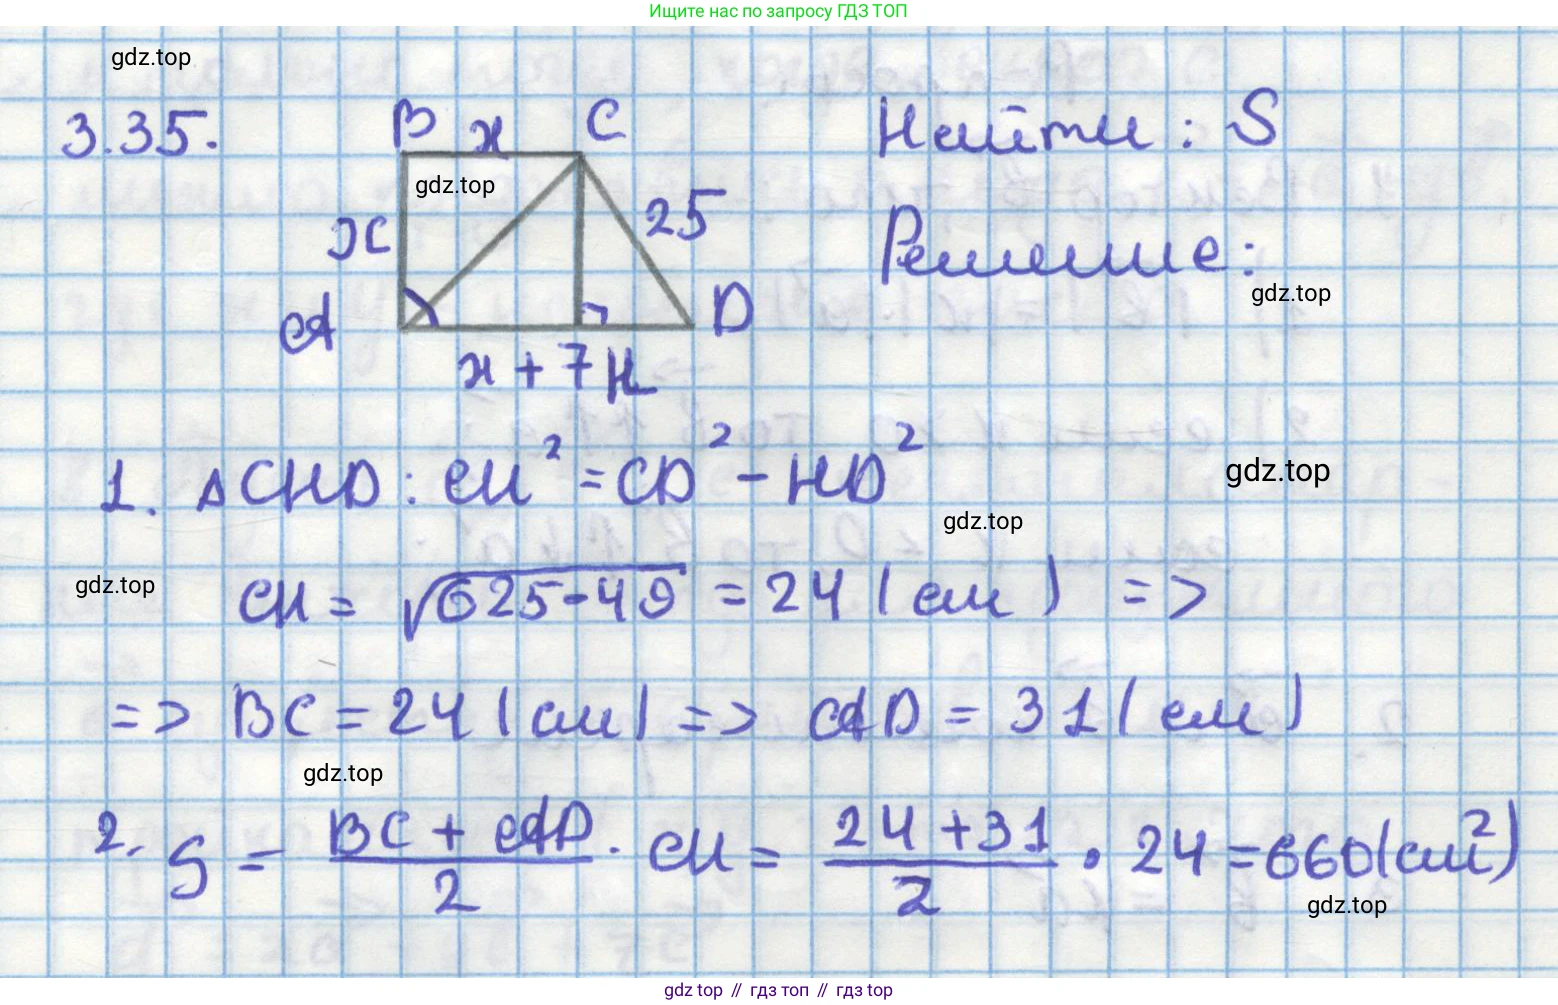 Ищите нас по запросу ГДЗ ТОП
gdz.top
3.35.
B x C
Найти: S
gdz.top
x
25
Решение:
gdz.top
A
D
x + 7 H
1. △CHD: CH² = CD² - HD²
gdz.top
gdz.top
gdz.top
CH = √625-49 = 24 (см) =>
=> BC = 24 (см) => AD = 31 (см)
gdz.top
2. S = BC + AD / 2 · CH = 24 + 31 / 2 · 24 = 660 (см²)
gdz.top
gdz top // гдз топ // гдз top